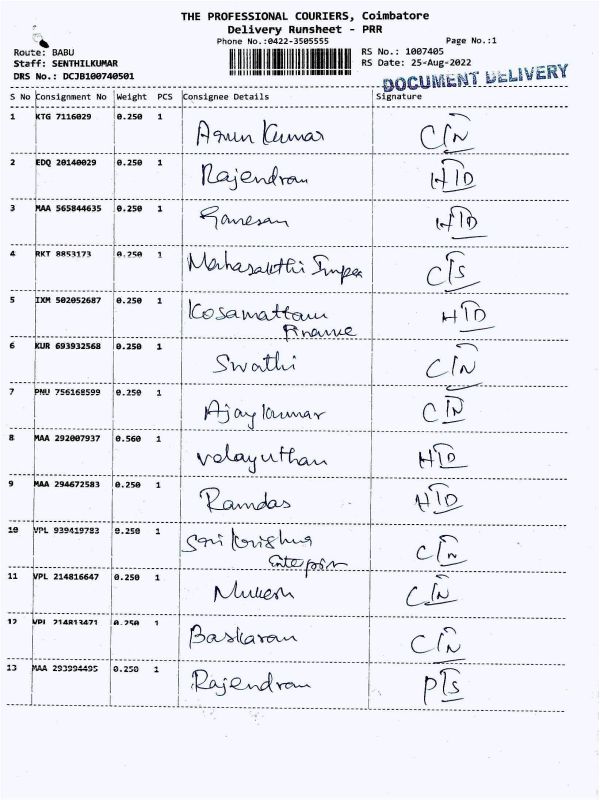 THE PROFESSIONAL COURIERS, Coimbatore
Delivery Runsheet - PRR
Phone No.:0422-3505555
Page No.:1
Route: BABU
RS No.: 1007405
Staff: SENTHILKUMAR
RS Date: 25-Aug-2022
DRS No.: DCJB100740501
DOCUMENT DELIVERY
S No Consignment No Weight PCS Consignee Details Signature
1 KTG 7116029 0.250 1 Arun Kumar CTN
2 EDQ 20140029 0.250 1 Rajendran HTD
3 MAA 565844635 0.250 1 Ganesan HTD
4 RKT 8853173 0.250 1 Mahasakthi CTS
5 IXM 502052687 0.250 1 Kosamattam HTD
Finance
6 KUR 693932568 0.250 1 Swathi CTN
7 PNU 756168599 0.250 1 Ajay Kumar CTN
8 MAA 292007937 0.560 1 velayuthan HTD
9 MAA 294672583 0.250 1 Ramdas HTD
10 VPL 939419783 0.250 1 Sri Krishna CTN
11 VPL 214816647 0.250 1 Mukesh CTN
12 VPL 214813471 0.250 1 Baskaran CTN
13 MAA 293994495 0.250 1 Rajendran PTS